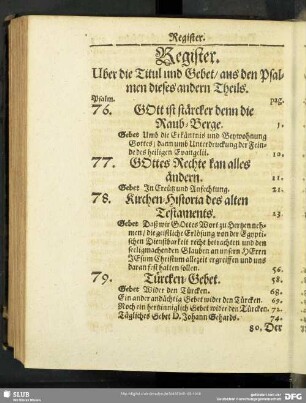 Register.
Register.
Uber die Titul und Gebet/ aus den Psal-
men dieses andern Theils.
Psalm. pag.
76. GOtt ist stärcker denn die
Raub-Berge. 1.
Gebet Umb die Erkäntnis und Beywohnung
Gottes/ dann umb Unterdruckung der Fein-
de des heiligen Evangelii. 10.
77. GOttes Rechte kan alles
ändern. 11.
Gebet In Creutz und Anfechtung. 21.
78. Kirchen-Historia des alten
Testaments. 23.
Gebet Daß wir GOttes Wort zu Hertzen neh-
men/ die geistliche Erlösung von der Egypti-
schen Dienstbarkeit recht betrachten und den
seeligmachenden Glauben an unsern HErrn
JEsum Christum allezeit ergreiffen und uns
daran fest halten sollen. 56.
79. Türcken-Gebet. 58.
Gebet Wider den Türcken. 68.
Ein ander andächtig Gebet wider den Türcken. 69.
Noch ein hertzinniglich Gebet wider den Türcken. 72.
Tägliches Gebet D. Johann Gehards. 74.
80. Der
SLUB
DFG